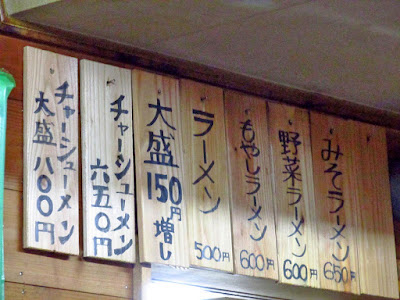 みそラーメン
650円
野菜ラーメン
600円
もやしラーメン
600円
ラーメン
500円
大盛
150円
増し
チャーシューメン
六五〇円
チャーシューメン
大盛八〇〇円